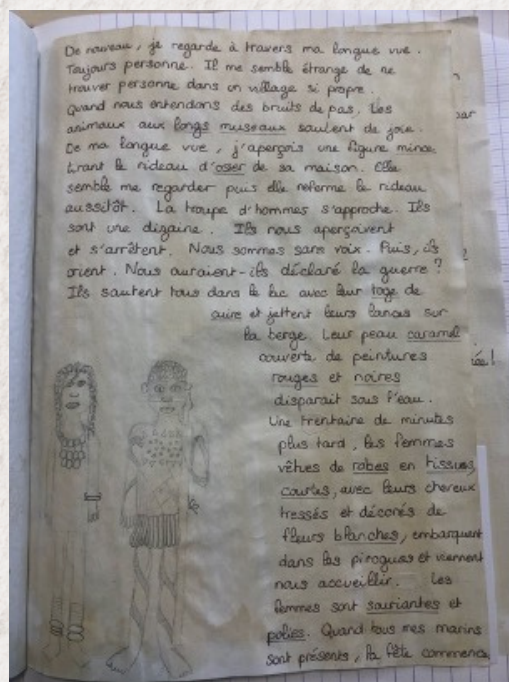 De nouveau, je regarde à travers ma longue vue.
Toujours personne. Il me semble étrange de ne
trouver personne dans un village si propre.
Quand nous entendons des bruits de pas. Les
animaux aux longs museaux sautent de joie.
De ma longue vue, j'aperçois une figure mince
tirant le rideau d'osier de sa maison. Elle
semble me regarder puis elle referme le rideau
aussitôt. La troupe d'hommes s'approche. Ils
sont une dizaine. Ils nous aperçoivent
et s'arrêtent. Nous sommes sans voix. Puis, ils
crient. Nous auraient-ils déclaré la guerre ?
Ils sautent tous dans le lac avec leur toge de
cuire et jettent leurs lances sur
la berge. Leur peau caramel
couverte de peintures
rouges et noires
disparait sous l'eau.
Une trentaine de minutes
plus tard, les femmes
vêtues de robes en tissues
courtes, avec leurs cheveux
tressés et décorés de
fleurs blanches, embarquent
dans les pirogues et viennent
nous accueillir. Les
femmes sont souriantes et
polies. Quand tous mes marins
sont présents, la fête commence